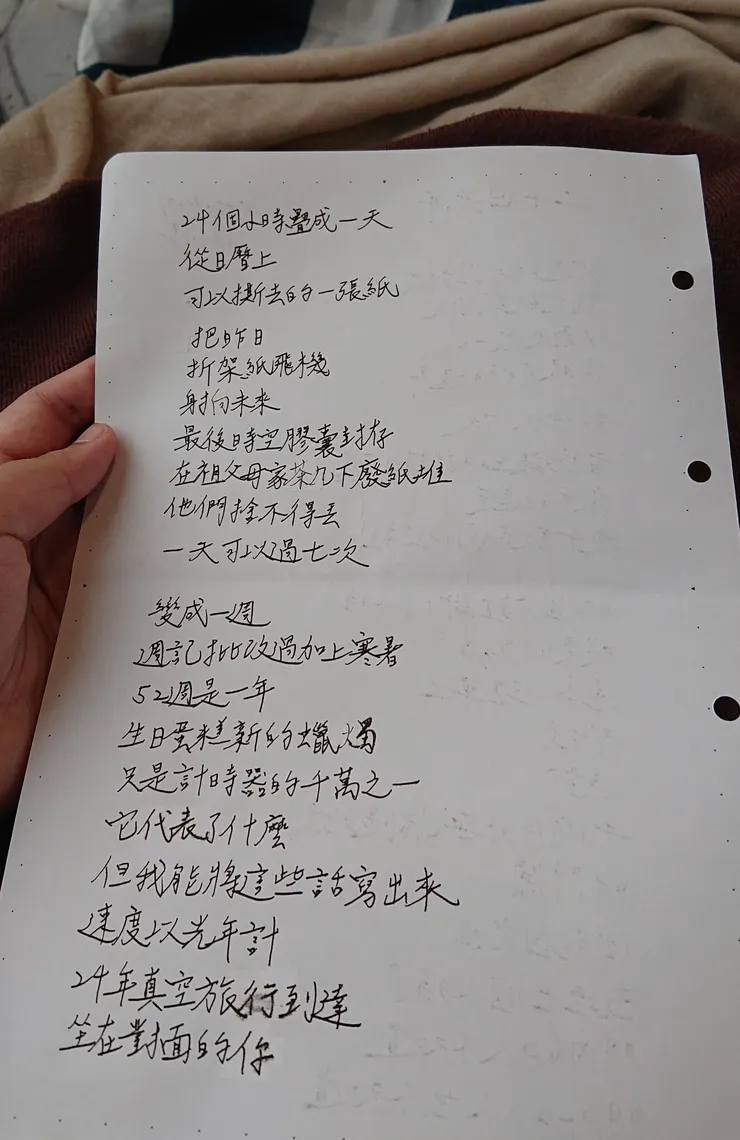 24個小時疊成一天
從日曆上
可以撕去的一張紙
把昨日
折架紙飛機
射向未來
最後時空膠囊封存
在祖父母家茶几下廢紙堆
他們捨不得丟
一天可以過七次
變成一週
週記批改過加上寒暑
52週是一年
生日蛋糕新的蠟燭
只是計時器的千萬之一
它代表了什麼
但我能將這些話寫出來
速度以光年計
24年真空旅行到達
坐在對面的你